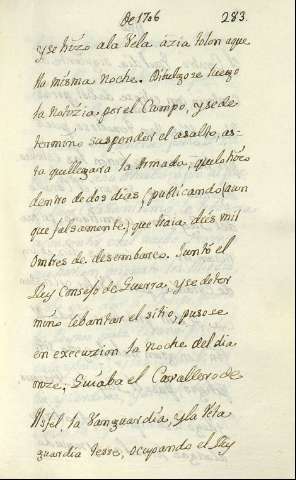 de 1706 283.
y se hizo a la Vela azia tolon aque
lla misma noche. Dibulgose luego
la Notizia por el Campo, y se de
termino suspender el asalto, as-
ta que llegara la Armada, que lo hizo
dentro de dos dias, publicando (aun
que falsamente) que traia diés mil
Ombres de desembarco. Juntó el
Rey Consejo de Guerra, y se deter
minó lebantar el sitio, pusose
en execuzion la noche del dia
onze; Guiaba el Cavallero de
Asfel, la Vanguardia, y la Reta
guardia Tesse, ocupando el Rey